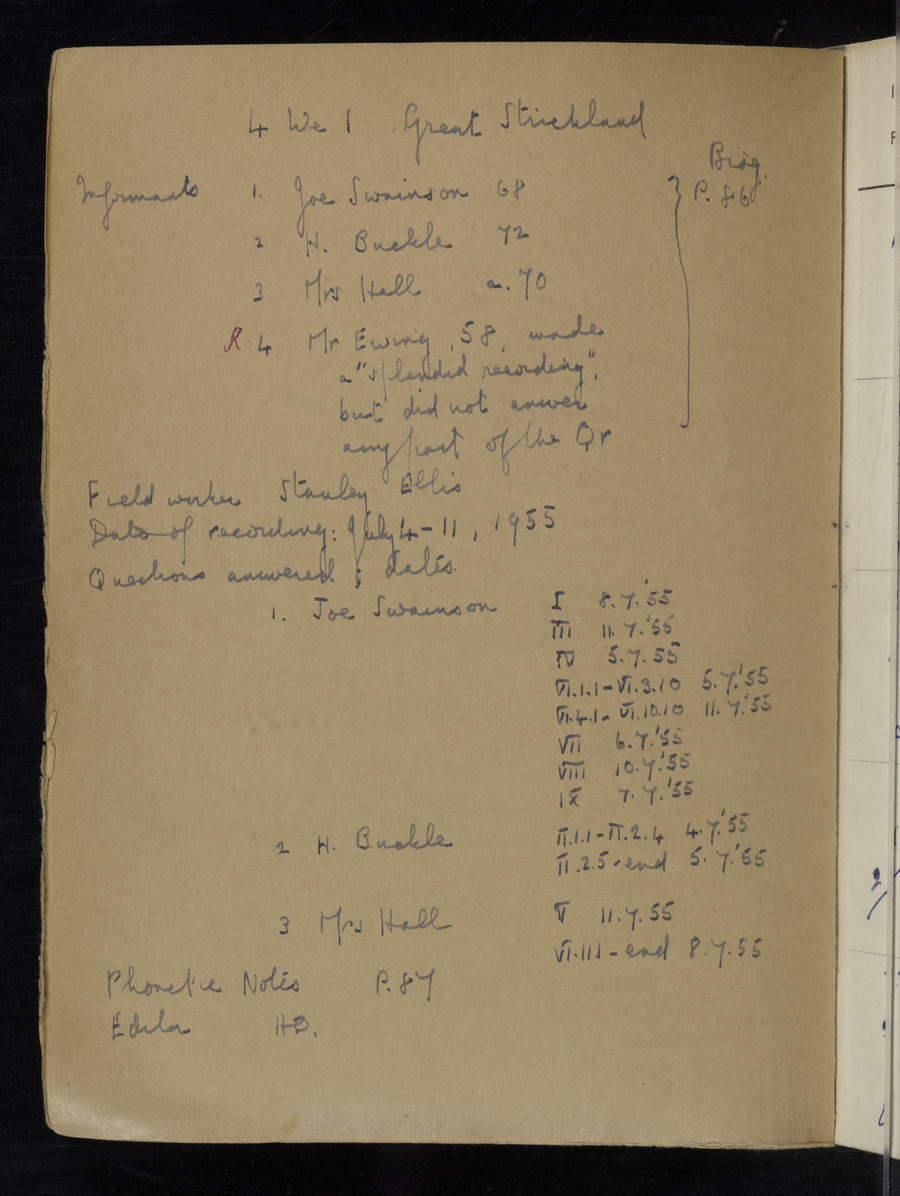 4 We 1 Great Strickland
Biog.
Informants 1. Joe Swainson 68 P. 86
2 H. Buckle 72
3 Mrs Hall a. 70
R 4 Mr Ewing, 58, made
a "splendid recording",
but did not answer
any part of the Qr
Field worker Stanley Ellis
Date of recording: July 4-11, 1955
Questions answered; dates
1. Joe Swainson I 8.7.'55
III 11.7.'55
IV 5.7.55
VI.1.1-VI.3.10 5.7.'55
VI.4.1-VI.10.10 11.7.'55
VII 6.7.'55
VIII 10.7.'55
IX 7.7.'55
2 H. Buckle II.1.1-II.2.4 4.7.'55
II.2.5-end 5.7.'55
3 Mrs Hall V 11.7.55
VI.11.1-end 8.7.55
Phonetic Notes P. 87
Editor HO.